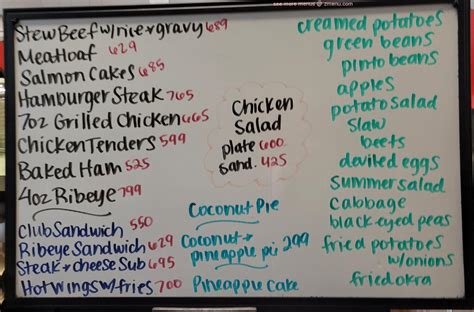 see more menus @ zmenu.com
Stew Beef w/rice + gravy 689
Meatloaf 629
Salmon Cakes 685
Hamburger Steak 765
7oz Grilled Chicken 665
Chicken Tenders 599
Baked Ham 525
4oz Ribeye 799
Club Sandwich 550
Ribeye Sandwich 629
Steak + cheese Sub 695
Hot wings w/fries 700
Chicken
Salad
plate 600
sand. 425
Coconut Pie
Coconut +
pineapple pie 299
Pineapple Cake
creamed potatoes
green beans
pinto beans
apples
potato salad
slaw
beets
deviled eggs
Summer salad
Cabbage
black-eyed peas
fried potatoes
w/onions
fried okra